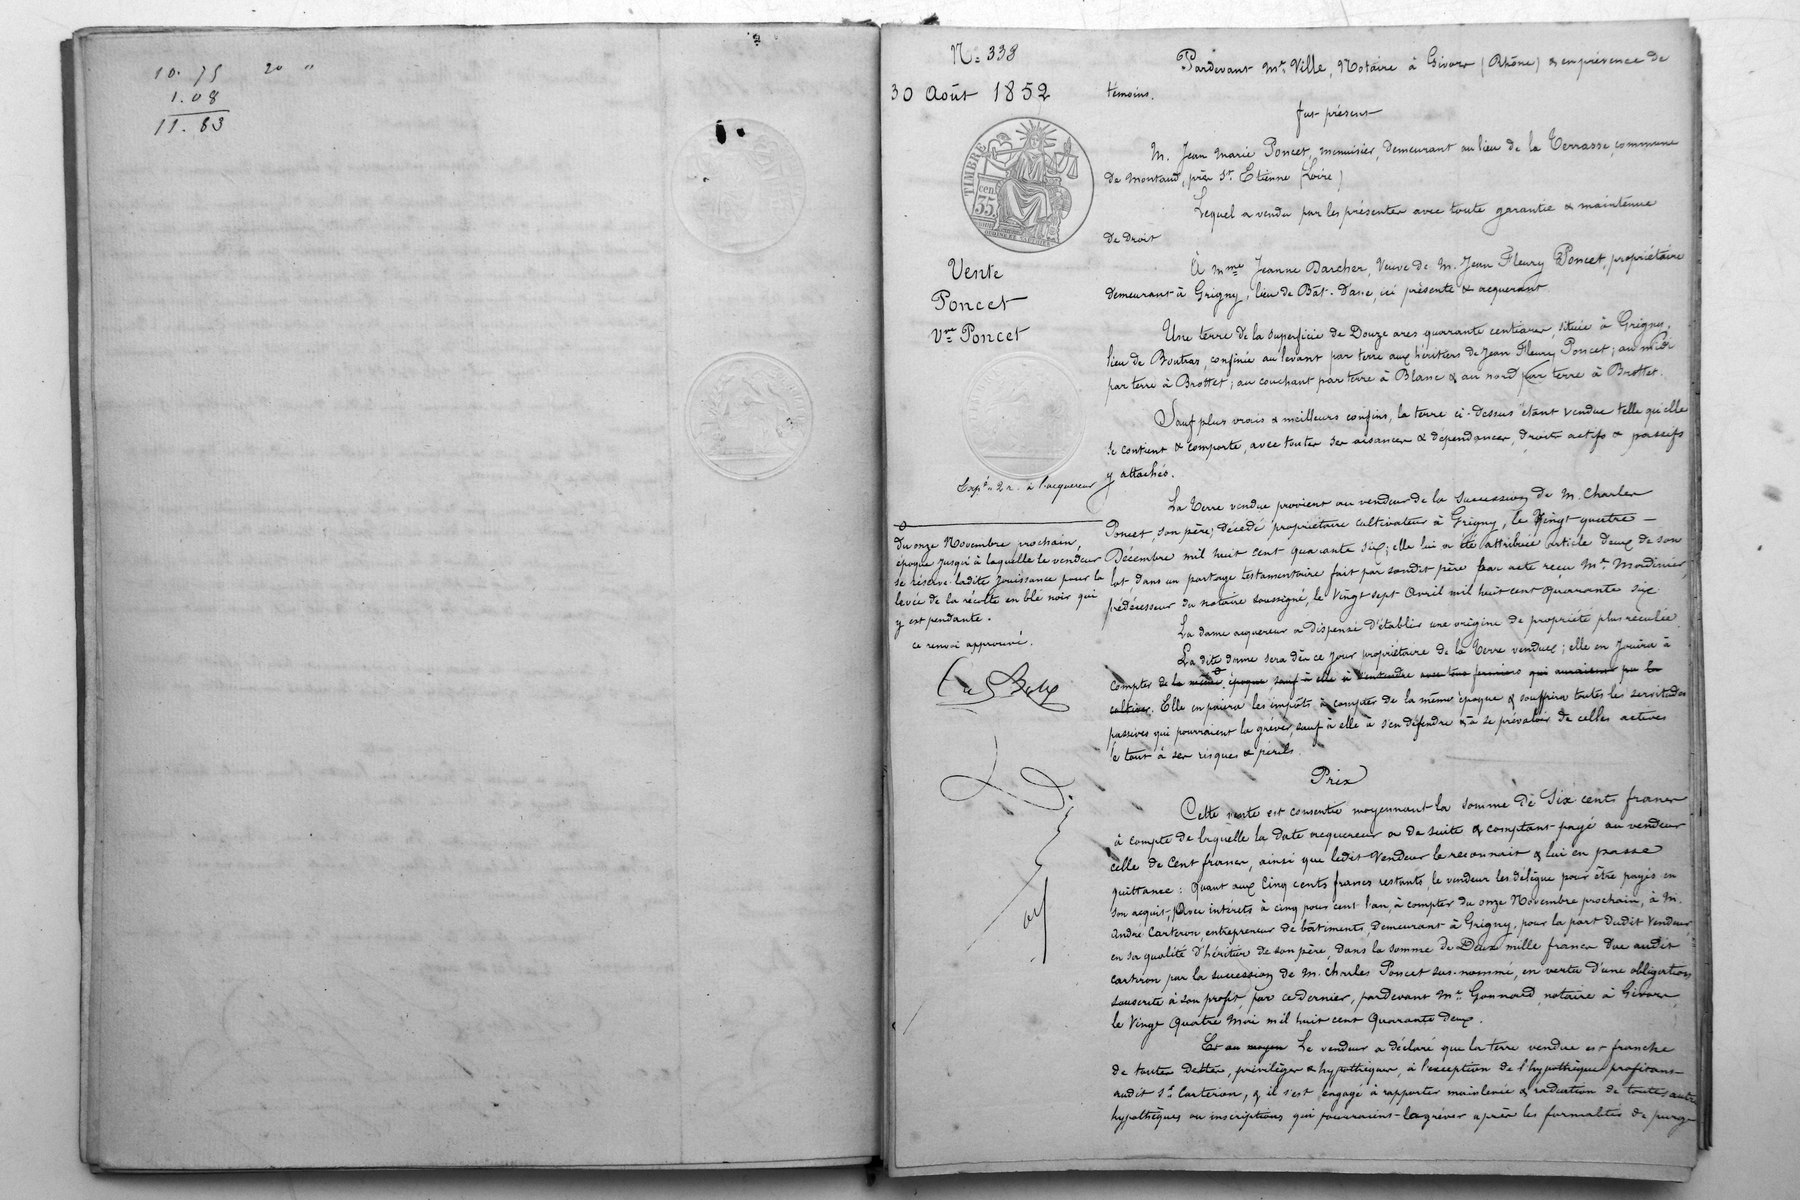 10. 75 20 "
1.08
11. 83
N° 338
30 Août 1852
TIMBRE
cen
35
Vente
Poncet
Vve Poncet
à l'acquereur
Du onze Novembre prochain,
époque jusqu'à laquelle le vendeur
se réserve ladite jouissance pour la
levée de la récolte en blé noir qui
y est pendante.
ce renvoi approuvé.
Pardevant Me Ville, Notaire à Givors (Rhône) & en présence de
témoins.
fut présent
M. Jean Marie Poncet, menuisier, demeurant au lieu de la Terrasse, commune
de Montaud, près St Etienne (Loire)
Lequel a vendu par les présentes avec toute garantie & maintenue
de droit
À mme Jeanne Darcher, Veuve de M. Jean Fleury Poncet, propriétaire
demeurant à Grigny, lieu de Bât-Dane, ici présente & acquerant
Une terre de la superficie de Douze ares quarante centiares, située à Grigny,
lieu de Boutras, confinée au levant par terre aux héritiers de Jean Fleury Poncet; au midi
par terre à Brottet; au couchant par terre à Blanc & au nord par terre à Brottet.
Sauf plus vrais & meilleurs confins, la terre ci-dessus étant vendue telle qu'elle
se contient & comporte, avec toutes ses aisances & dépendances, droits actifs & passifs
y attachés.
La Terre vendue provient au vendeur de la succession de M. Charles
Poncet, son père, décédé propriétaire cultivateur à Grigny, le Vingt quatre
Décembre mil huit cent quarante six; elle lui a été attribuée article deux de son
lot, dans un partage testamentaire fait par sondit père par acte reçu Me Moudinier,
prédécesseur du notaire soussigné, le Vingt sept Avril mil huit cent quarante six.
La dame acquereur a dispensé d'établir une origine de propriété plus reculée.
La dite dame sera dès ce jour propriétaire de la Terre vendue; elle en Jouira à
compter de la même époque, sauf à elle à s'entendre avec tous fermiers qui auraient pu la
cultiver. Elle en paiera les impôts à compter de la même époque & souffrira toutes les servitudes
passives qui pourraient la gréver, sauf à elle à s'en défendre & à se prévaloir de celles actives
le tout à ses risques & périls.
Prix
Cette vente est consentie moyennant la somme de Six cents francs
à compte de laquelle la date acquereur a de suite & comptant payé au vendeur
celle de Cent francs, ainsi que ledit Vendeur le reconnait & lui en passe
quittance: Quant aux Cinq cents francs restants, le vendeur les délègue pour être payés en
son acquit, avec intérêts à cinq pour cent l'an, à compter du onze Novembre prochain, à M.
André Carteron, entrepreneur de bâtiments, demeurant à Grigny, pour la part dudit Vendeur
en sa qualité d'héritier de son père, dans la somme de Deux mille francs due audit
Carteron par la succession de M. Charles Poncet sus-nommé, en vertu d'une obligation
souscrite à son profit, par ce dernier, pardevant Me Gonnard, notaire à Givors,
le Vingt Quatre Mai mil huit cent Quarante deux.
Et au moyen Le vendeur a déclaré que la terre vendue est franche
de toutes dettes, priviléges & hypothèques, à l'exception de l'hypothèque profitant
audit Sr Carteron, & il s'est engagé à rapporter mainlevée & radiation de toutes autres
hypothèques ou inscriptions qui pourraient la gréver après les formalités de purge